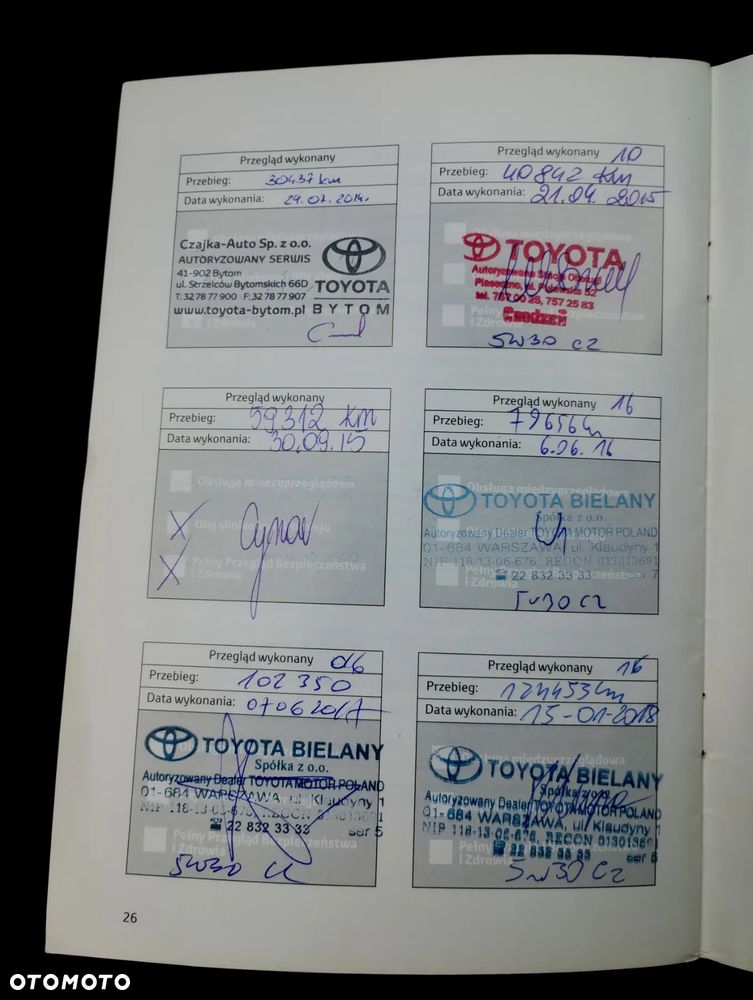 Przegląd wykonany
Przebieg: 30437 km
Data wykonania: 29.07.2014r.
Czajka-Auto Sp. z o.o.
AUTORYZOWANY SERWIS
41-902 Bytom
ul. Strzelców Bytomskich 66D
T: 32 78 77 900 F: 32 78 77 907
www.toyota-bytom.pl
TOYOTA
BYTOM
Przegląd wykonany 10
Przebieg: 40842 km
Data wykonania: 21.04.2015
TOYOTA
Autoryzowana Stacja Obsługi
Piaseczno, ul. Puławska
tel. 757 00 28, 757 25 83
5W30 C2
Przegląd wykonany
Przebieg: 59312 km
Data wykonania: 30.09.15
Obsługa międzyprzeglądowa
X Olej silnikowy
X Pełny Przegląd Bezpieczeństwa
i Zdrowia
Przegląd wykonany 16
Przebieg: 79656 km
Data wykonania: 6.06.16
TOYOTA BIELANY
Spółka z o.o.
Autoryzowany Dealer TOYOTA MOTOR POLAND
01-684 WARSZAWA, ul. Klaudyny 1
NIP 118-13-06-676, REGON 013013691
☎ 22 832 33 33
5W30 C2
Przegląd wykonany 06
Przebieg: 102 350
Data wykonania: 07062017
TOYOTA BIELANY
Spółka z o.o.
Autoryzowany Dealer TOYOTA MOTOR POLAND
01-684 WARSZAWA, ul. Klaudyny 1
NIP 118-13-06-676, REGON 013013691
☎ 22 832 33 33 ser 5
Pełny Przegląd Bezpieczeństwa
i Zdrowia
5W30 C2
Przegląd wykonany 16
Przebieg: 124453 km
Data wykonania: 15-01-2018
TOYOTA BIELANY
Spółka z o.o.
Autoryzowany Dealer TOYOTA MOTOR POLAND
01-684 WARSZAWA, ul. Klaudyny 1
NIP 118-13-06-676, REGON 013013691
☎ 22 832 33 33 ser 5
5W30 C2
26
OTOMOTO